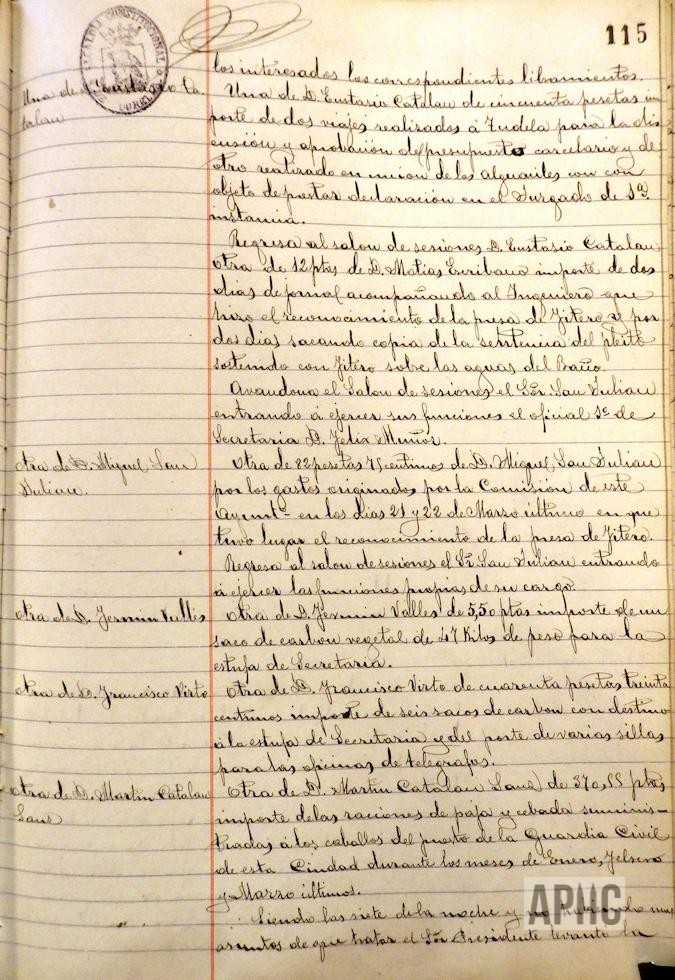 115
ALCALDIA CONSTITUCIONAL
los interesados los correspondientes libramientos.
Una de D. Eustasio Catalau
Una de D. Eustasio Catalau de cincuenta pesetas im
porte de dos viajes realizados á Tudela para la dis
cusión y aprobación del presupuesto carcelario y de
otro realizado en union de los alguaciles con con
objeto de prestar declaración en el Juzgado de 1ª
instancia.
Regresa al salon de sesiones D. Eustasio Catalau
Otra de 12 ptas de D. Matias Escribano importe de dos
dias de jornal acompañando al Ingeniero que
hizo el reconocimiento de la presa de Fitero y por
dos dias sacando copia de la sentencia del pleito
sostenido con Fitero sobre las aguas del Baño.
Avandona el Salon de sesiones el Sór. San Julian
entrando á ejercer sus funciones el oficial 1º de
Secretaria D. Felix Muñoz.
Otra de D. Miguel San
Julian.
Otra de 82 pesetas 75 centimos de D. Miguel San Julian
por los gastos originados por la Comisión de este
Ayunt- en los dias 21 y 22 de Marzo último en que
tuvo lugar el reconocimiento de la presa de Fitero.
Regresa al salon de sesiones el Sr. San Julian entrando
á ejercer las funciones propias de su cargo.
Otra de D. Fermin Vallés
Otra de D. Fermin Valles de 5,50 ptas importe de un
saco de carbon vegetal de 47 Kilos de peso para la
estufa de Secretaria.
Otra de D. Francisco Virto
Otra de D. Francisco Virto de cuarenta pesetas treinta
centimos importe de seis sacos de carbon con destino
á la estufa de Secretaria y del porte de varias sillas
para las oficinas de telegrafos.
Otra de D. Martin Catalau
Sanz
Otra de D. Martin Catalau Sanz de 370,55 ptas
importe de las raciones de paja y cebada suminis-
tradas á los caballos del puesto de la Guardia Civil
de esta Ciudad durante los meses de Enero, Febrero
y Marzo últimos.
Siendo las siete de la noche y no habiendo mas
asuntos de que tratar el Sór Presidente levantó la
APHC